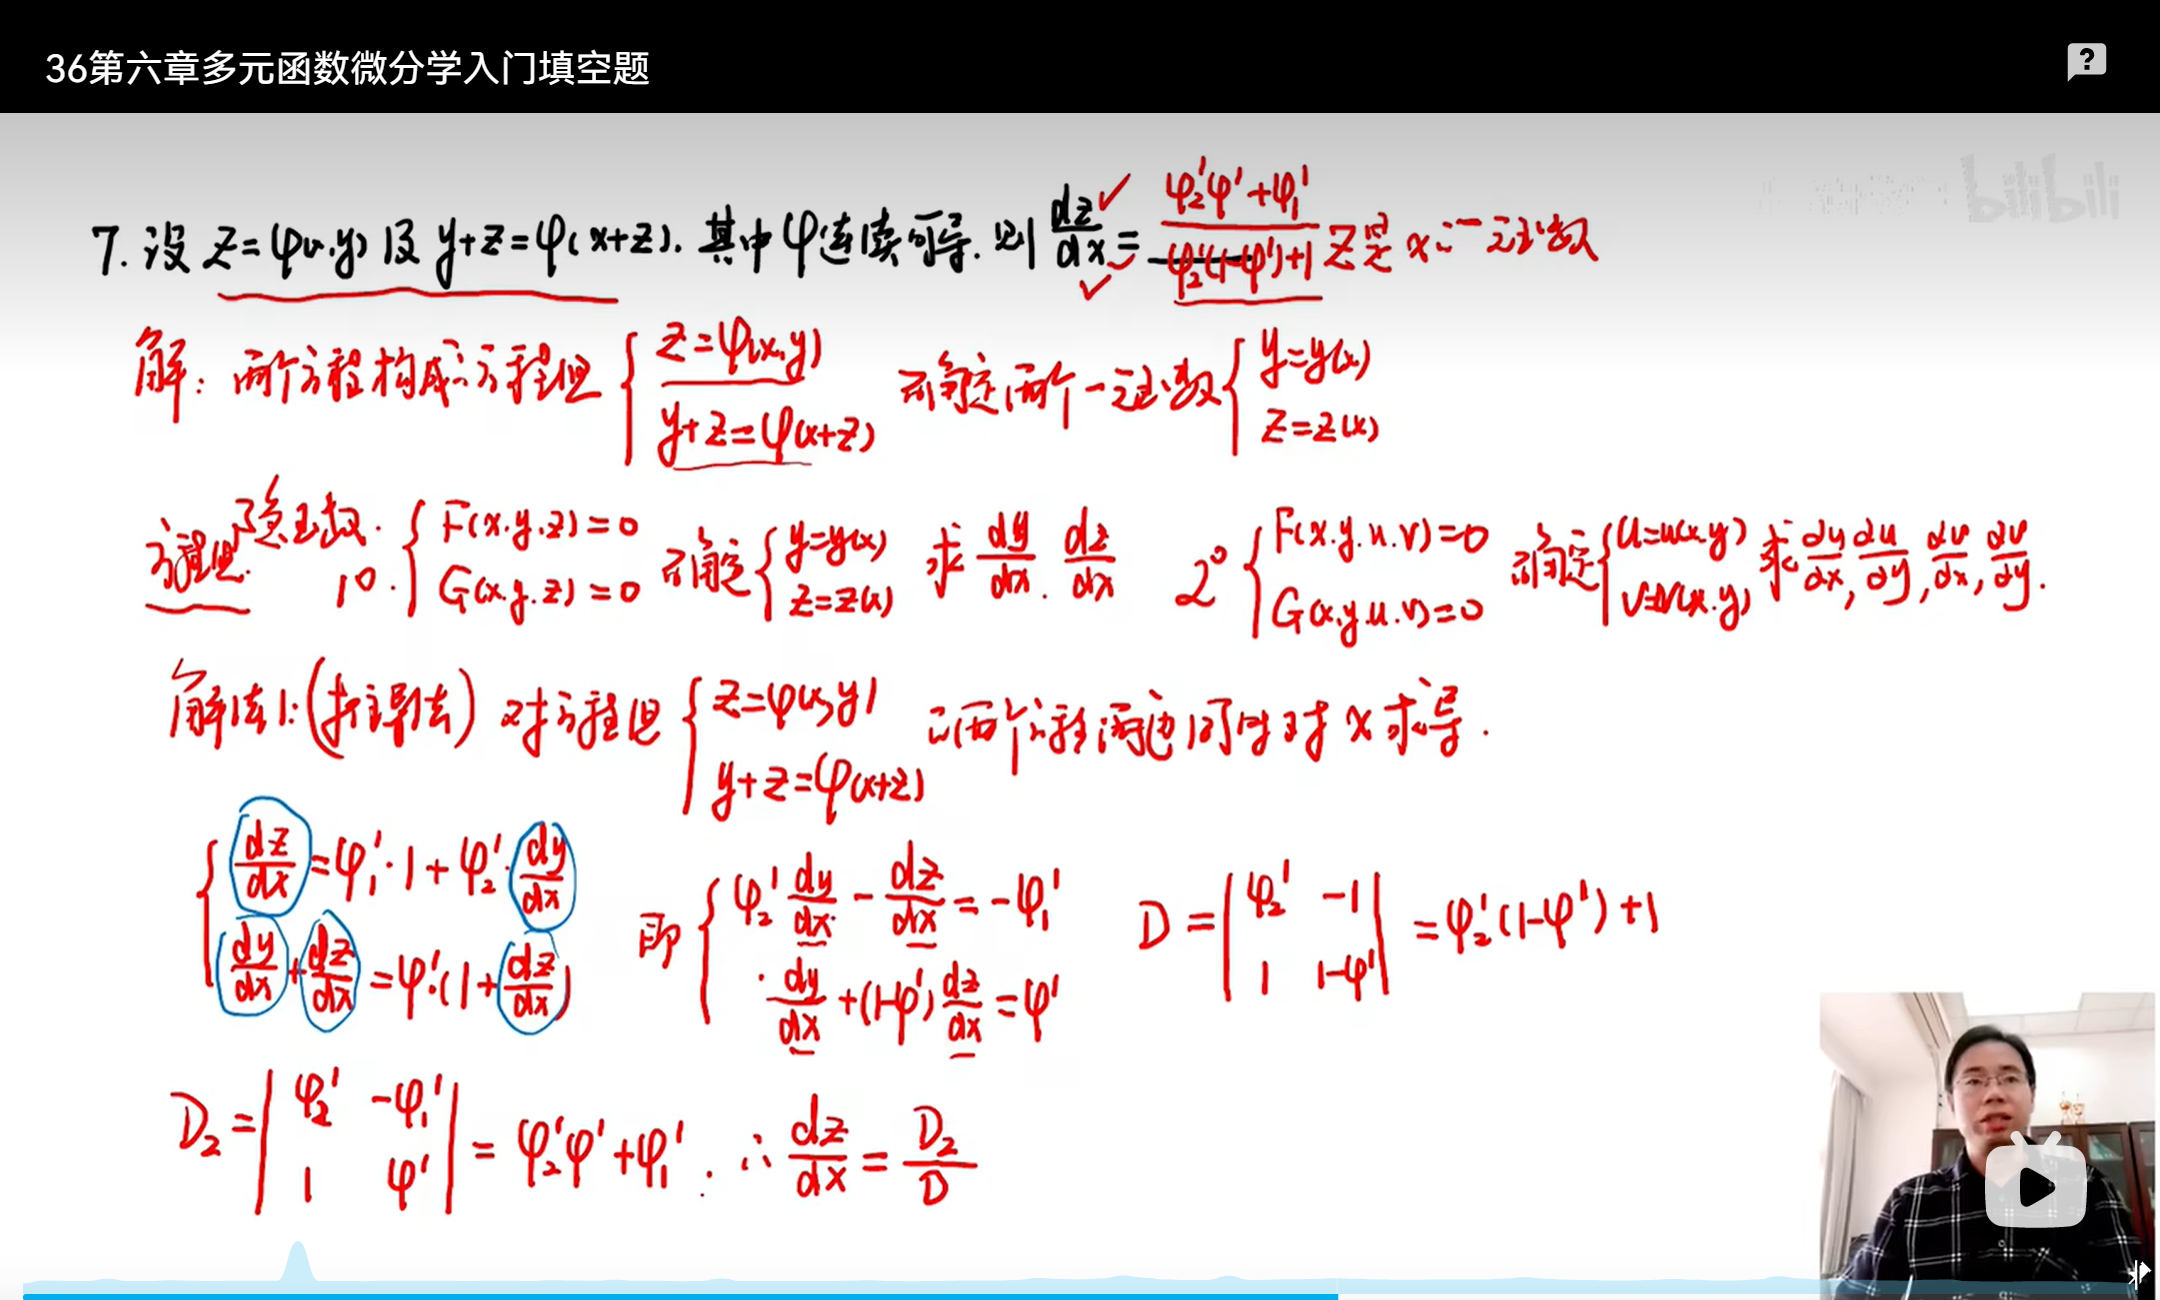 36第六章多元函数微分学入门填空题
bilibili
7. 设 z=φ(x,y) 及 y+z=φ(x+z). 其中 φ 连续可导. 则 dz/dx = (φ₂'φ'+φ₁')/(φ₂'(1-φ')+1) z是x的一元函数
解: 两个方程构成的方程组 { z=φ(x,y) y+z=φ(x+z) 可确定两个一元函数 { y=y(x) z=z(x)
方程组. 隐函数. 1° { F(x.y.z)=0 G(x.y.z)=0 可确定 { y=y(x) z=z(x) 求 dy/dx. dz/dx 2° { F(x.y.u.v)=0 G(x.y.u.v)=0 可确定 { u=u(x.y) v=v(x.y) 求 ∂u/∂x, ∂u/∂y, ∂v/∂x, ∂v/∂y.
解法1: (求导法) 对方程组 { z=φ(x,y) y+z=φ(x+z) 的两个方程两边同时对 x 求导.
{ dz/dx=φ₁'·1+φ₂'·dy/dx dy/dx+dz/dx=φ'·(1+dz/dx) 即 { φ₂' dy/dx - dz/dx = -φ₁' dy/dx+(1-φ')dz/dx=φ' D = | φ₂' -1 1 1-φ' | =φ₂'(1-φ')+1
D₂ = | φ₂' -φ₁' 1 φ' | = φ₂'φ'+φ₁'. ∴ dz/dx = D₂/D